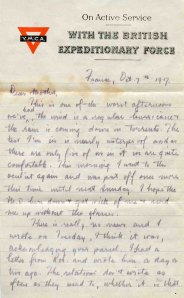 Y.M.C.A.
On Active Service
WITH THE BRITISH
EXPEDITIONARY FORCE
France, Oct 7th 1917.
Dear Mother,
This is one of the worst afternoons
we've had, the wind is a regular hurricane &
the rain is coming down in torrents. The
tent I'm in is nearly waterproof and as
there are only five of us in it we are quite
comfortable. This morning I went to the
again and was put off once more
this time until next Sunday. I hope the
down & get rid of me & send
me up without the
There is really no news and I
wrote on Tuesday, I think it was,
acknowledging your parcel. I had a
letter from and wrote him a day or
two ago. The relations don't write as
often as they used to, whether it is that